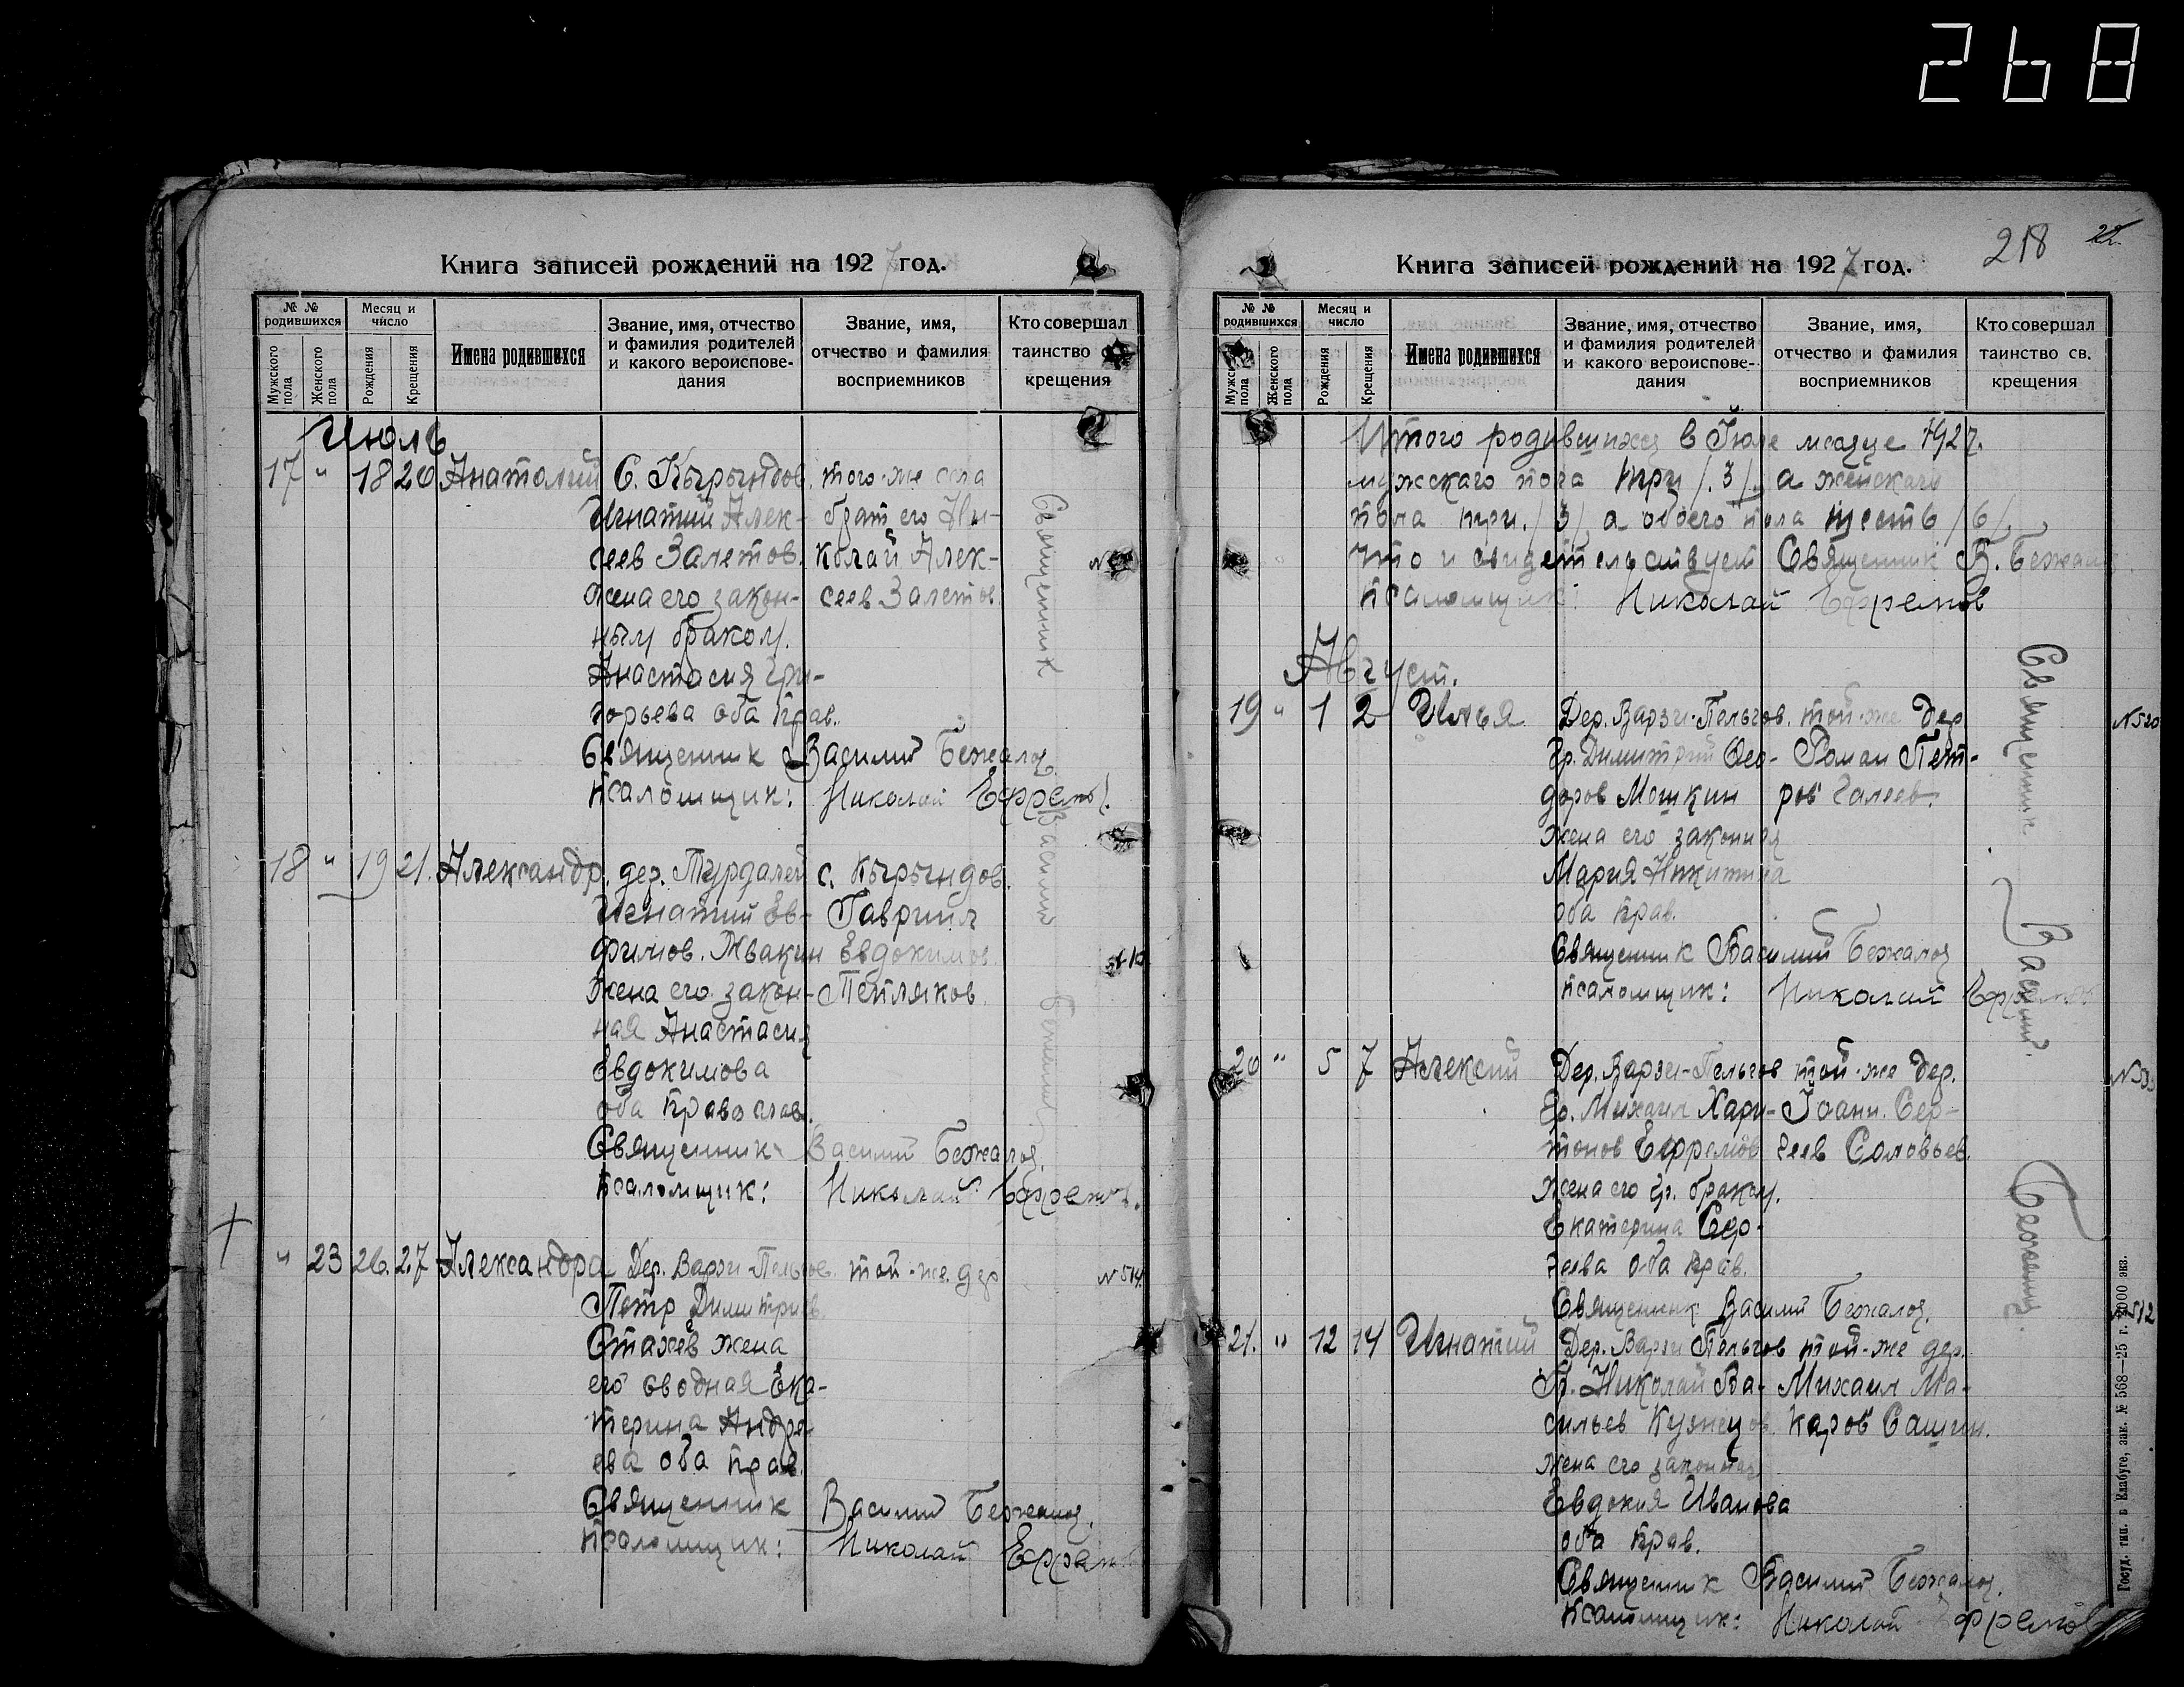 268
Книга записей рождений на 1927 год.
№ № родившихся
Мужского пола
Женского пола
Месяц и число
Рождения
Крещения
Имена родившихся
Звание, имя, отчество и фамилия родителей и какого вероисповедания
Звание, имя, отчество и фамилия восприемников
Кто совершал таинство
крещения
Июль
17 " 18 20 Анатолий С. Кырындов. того-же села
Игнатий Алек- брат его Ни-
сеев Залетов. колай Алек-
жена его закон- сеев Залетов
ным браком.
Анастасия Гри-
горьева оба прав.
Священник Василий
Псаломщик: Николай Ефремов.
18 " 19 21. Александр. дер. Турдалей с. Кырындов.
Игнатий Ев- Гавриил
фимов. Жвакин Евдокимов
жена его закон- Тепляков
ная Анастасия
Евдокимова
оба православ.
Священник Василий
Псаломщик: Николай Ефремов.
" 23 26. 27 Александра Дер. Варзи-Пельгов. той-же. дер
Петр Димитриев
Стахеев жена
его сводная Ека-
терина Андре-
ева оба прав.
Священник Василий
Псаломщик: Николай Ефремов
Священник Василий
N 514
218
22.
Книга записей рождений на 1927 год.
№ № родившихся
Мужск
пола
Женского пола
Месяц и число
Рождения
Крещения
Имена родившихся
Звание, имя, отчество и фамилия родителей и какого вероисповедания
Звание, имя, отчество и фамилия восприемников
Кто совершал таинство св. крещения
Итого родившихся в Июле месяце 1927.
мужскаго пола три /.3/. а женскаго
пола три. /3/ а обоего пола шесть /6/,
что и свидетельствует Священник В.
Псаломщик: Николай Ефремов
Август.
19 " 1 2 Илья Дер. Варзи-Пельгов. той-же дер
Гр. Димитрий Фео- Роман Пет-
доров Мошкин ров Галеев.
жена его законная
Мария Никитина
оба прав.
Священник Василий
Псаломщик: Николай Ефремов
N 520
20 " 5 7 Алексий Дер. Варзи-Пельгов той-же дер.
Гр. Михаил Хари- Иоанн. Сер-
тонов Ефремов геев Соловьев.
жена его гр. браком.
Екатерина Сер-
геева оба прав.
Священник Василий
21. " 12 14 Игнатий Дер. Варзи Пельгов той-же дер.
Гр. Николай Ва- Михаил Ма-
сильев Кузнецов. каров Сашин.
жена его законная
Евдокия Иванова
оба прав.
Священник Василий
Псаломщик: Николай Ефремов
Священник Василий
Госуд. тип. в Елабуге, зак. № 568—25 г.
000 экз.